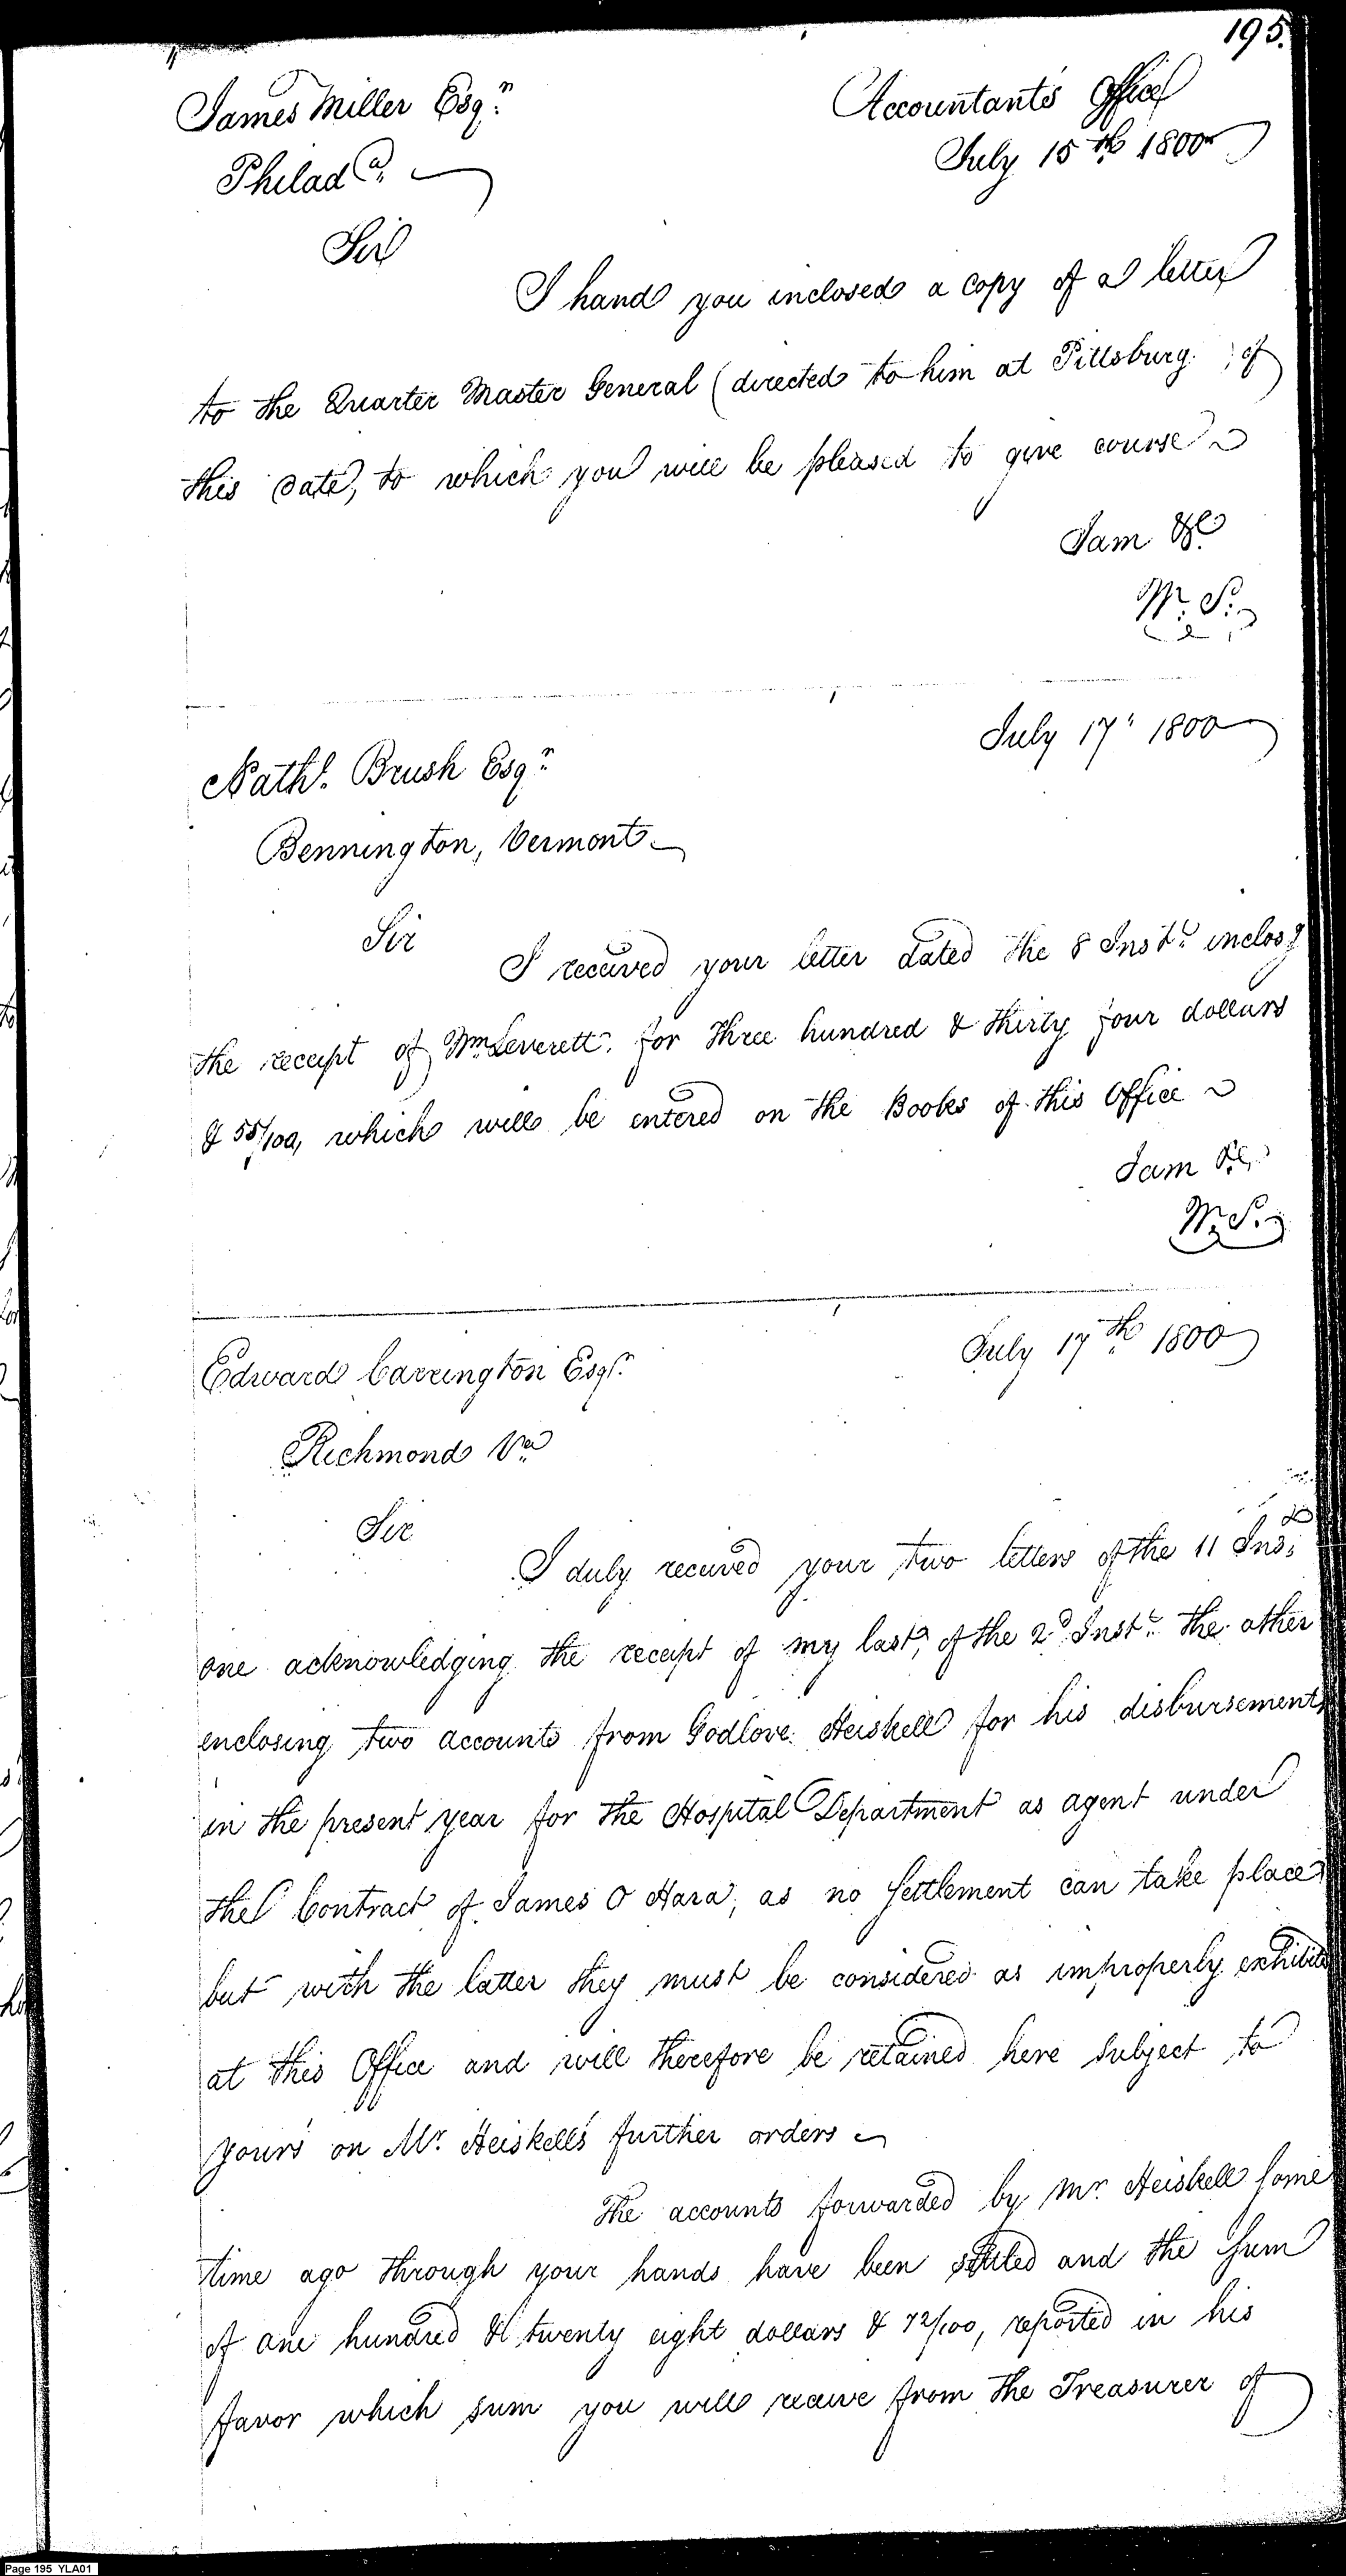 195.
James Miller Esqr.
Accountants Office
July 15th 1800
Philada.
Sir
I hand you inclosed a copy of a letter
to the Quarter Master General (directed to him at Pittsburg) of
this date, to which you will be pleased to give course
I am &c.
W. S.
July 17th 1800
Nathl. Brush Esqr.
Bennington, Vermont
Sir
I received your letter dated the 8 Inst. inclosg
the receipt of Wm Leverett. for three hundred & thirty four dollars
& 55/100, which will be entered on the Books of this Office
I am &c.
W. S.
July 17th 1800
Edward Carrington Esqr.
Richmond Va.
Sir
I duly received your two letters of the 11 Inst.
one acknowledging the receipt of my last, of the 2d. Inst. the other
enclosing two accounts from Godlove Heiskell for his disbursements
in the present year for the Hospital Department as agent under
the Contract of James O Hara, as no Settlement can take place
but with the latter they must be considered as improperly exhibited
at this Office and will therefore be retained here subject to
yours on Mr. Heiskell's further orders
The accounts forwarded by Mr. Heiskell some
time ago through your hands have been settled and the sum
of one hundred & twenty eight dollars & 72/100, reported in his
favor which sum you will receive from the Treasurer of
Page 195 YLA01